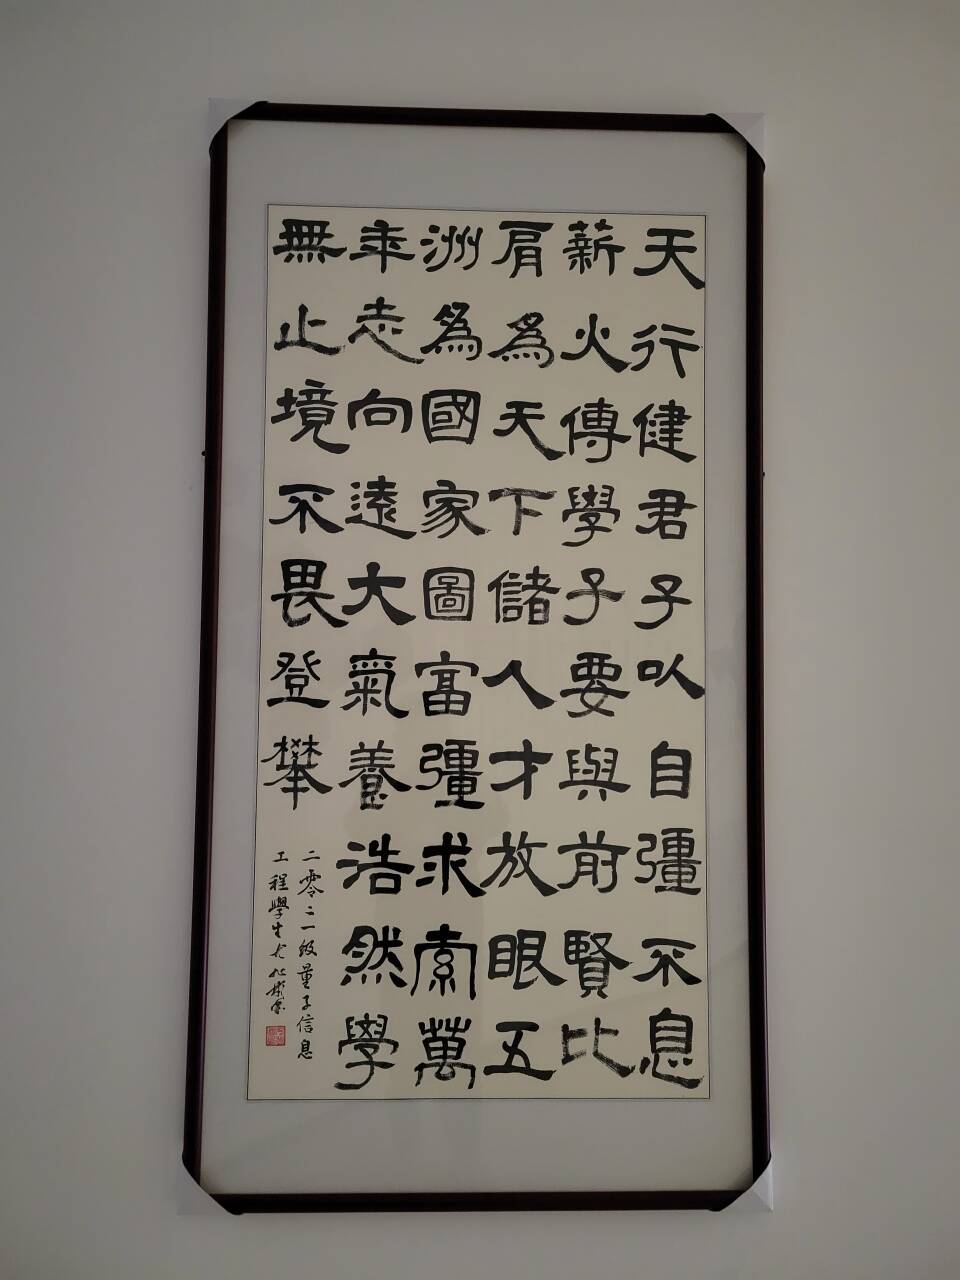 天行健君子以自彊不息
薪火傳學子要與前賢比
肩為天下儲人才放眼五
洲為國家圖富彊求索萬
年志向遠大氣養浩然學
無止境不畏登攀
二零二一级量子信息
工程學生